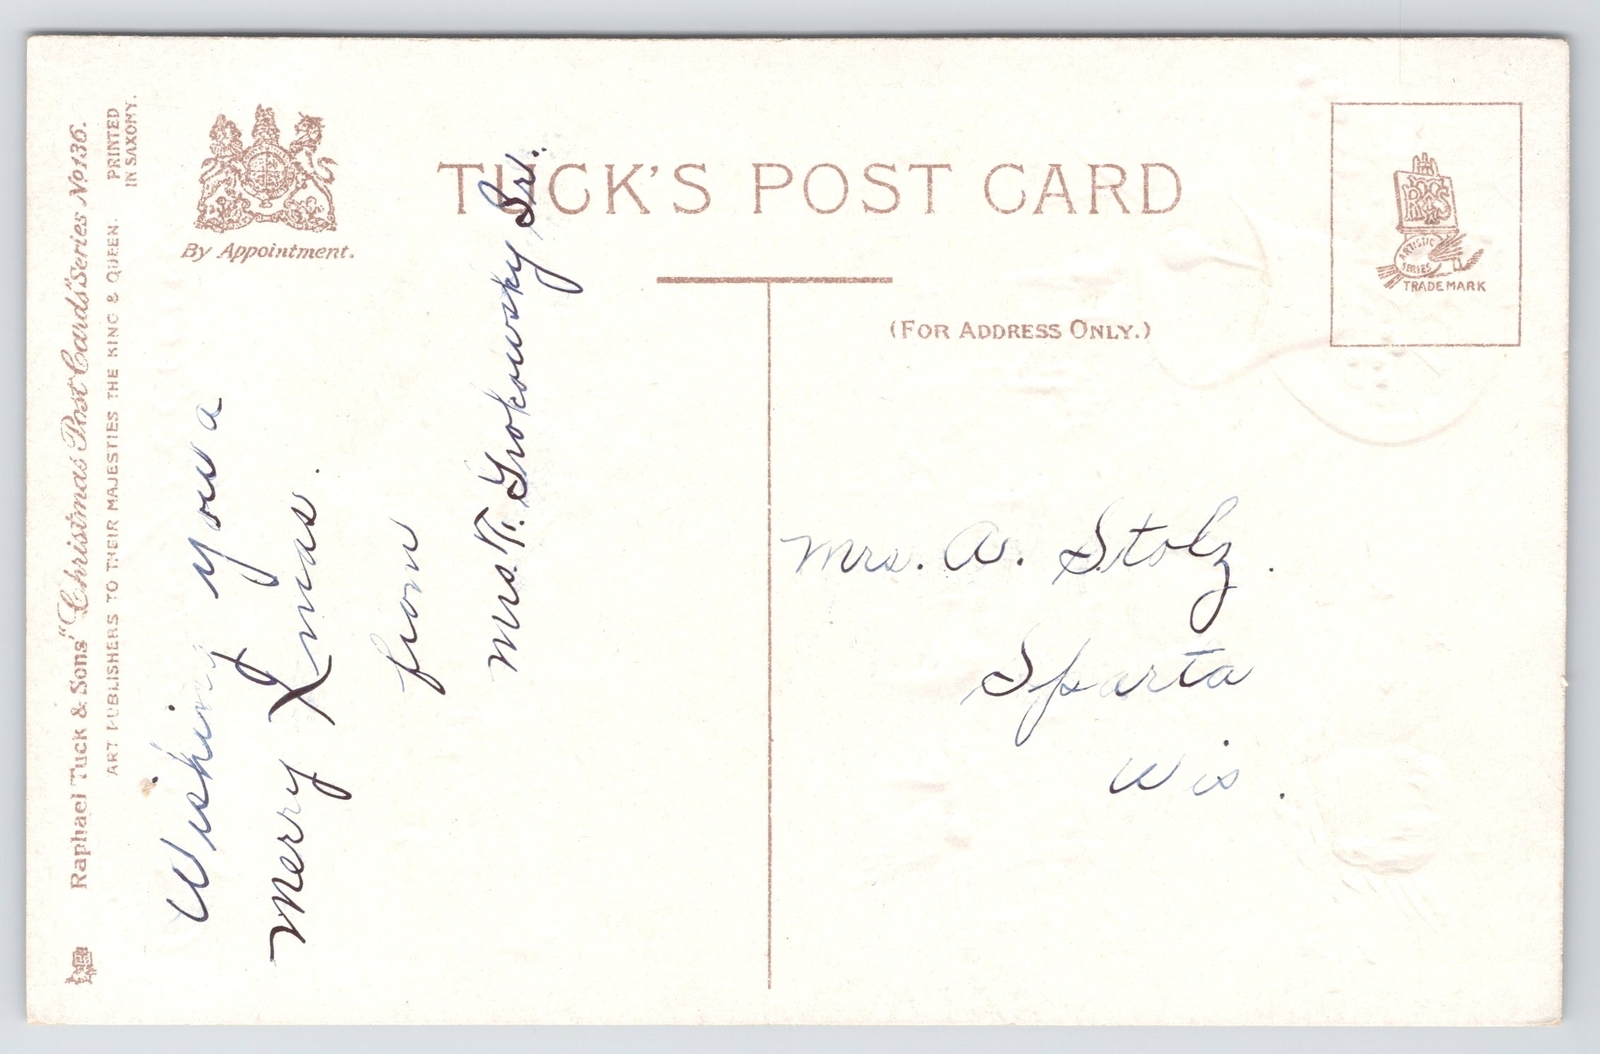 TUCK'S POST CARD
By Appointment.
(FOR ADDRESS ONLY.)
R T & S
ARTISTIC
SERIES
TRADE MARK
Raphael Tuck & Sons' "Christmas Post Cards" Series No. 136.
ART PUBLISHERS TO THEIR MAJESTIES THE KING & QUEEN.
PRINTED
IN SAXONY.
Wishing you a
Merry Xmas.
from
Mrs.
Mrs. A. Stolz.
Sparta
Wis.